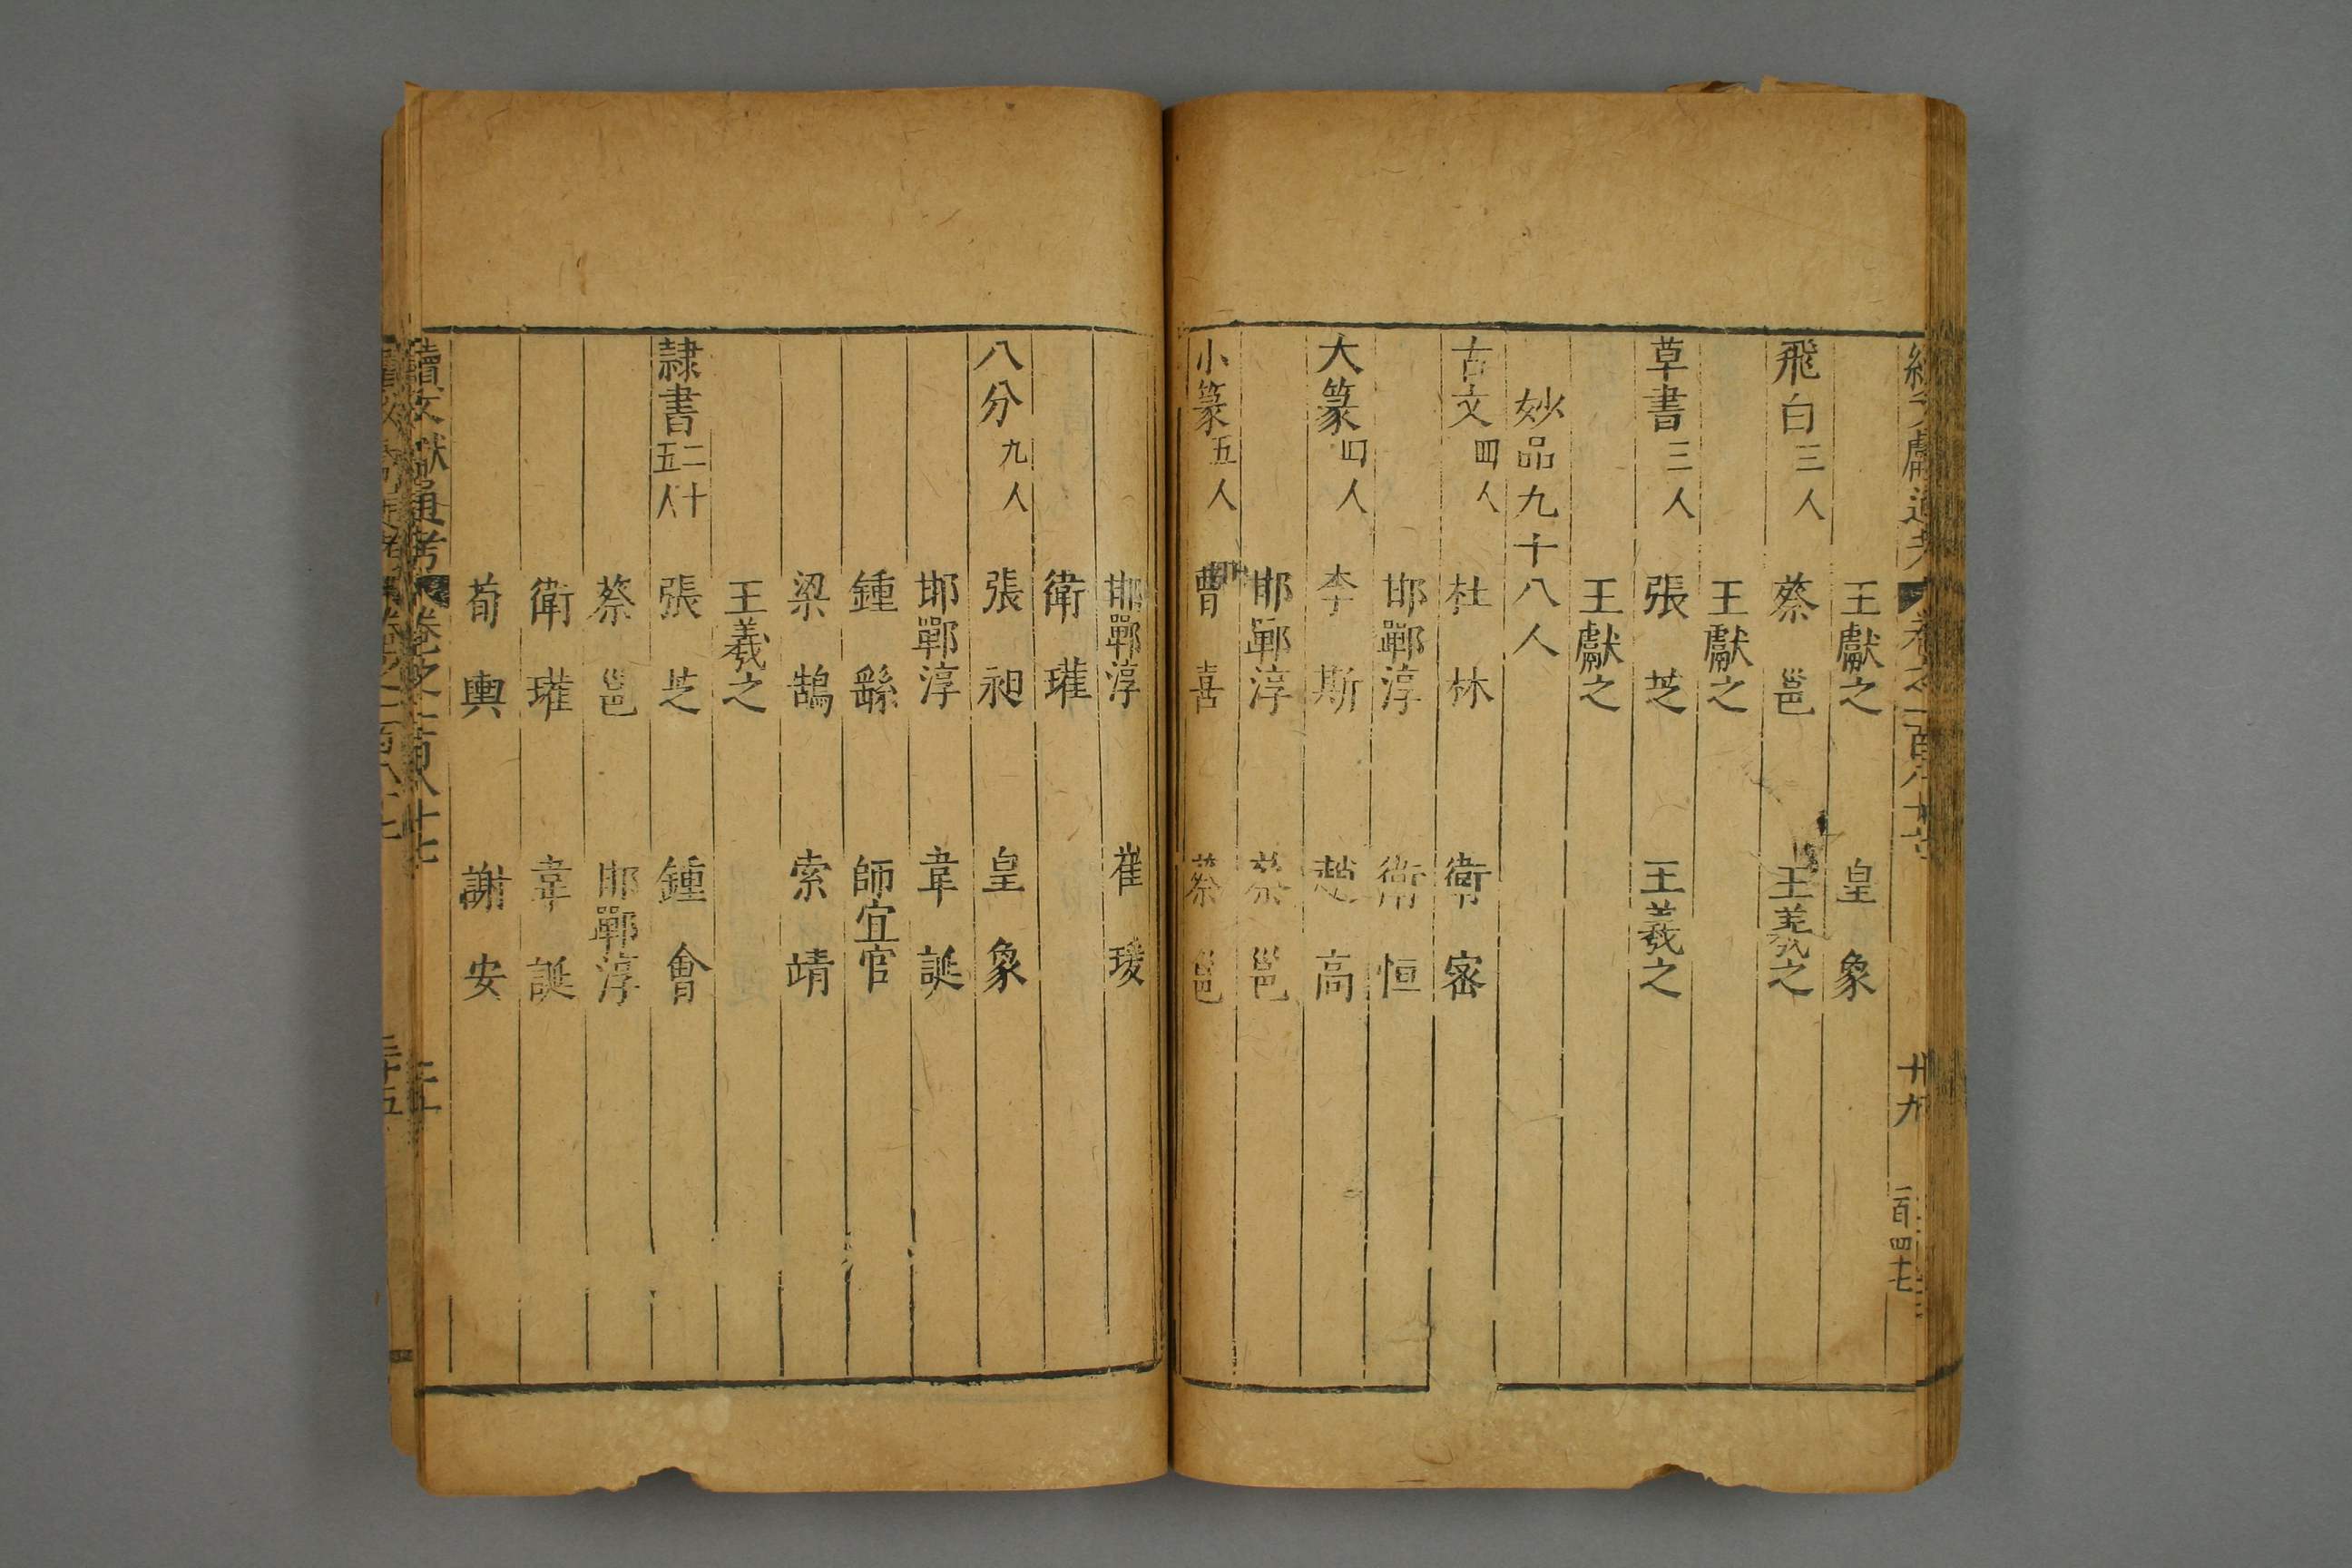 王獻之 皇象
飛白三人 蔡邕 王羲之
王獻之
草書三人 張芝 王羲之
王獻之
妙品九十八人
古文四人 杜林 衛宻
邯鄲淳 衛恒
大篆四人 李斯 趙高
邯鄲淳 蔡邕
小篆五人 曹喜 蔡邕
邯鄲淳 崔瑗
衛瓘
八分九人 張昶 皇象
邯鄲淳 韋誕
鍾繇 師宜官
梁鵠 索靖
王羲之
隷書二十五人 張芝 鍾會
蔡邕 邯鄲淳
衛瓘 韋誕
荀輿 謝安
續文獻通考 卷之一百八十七